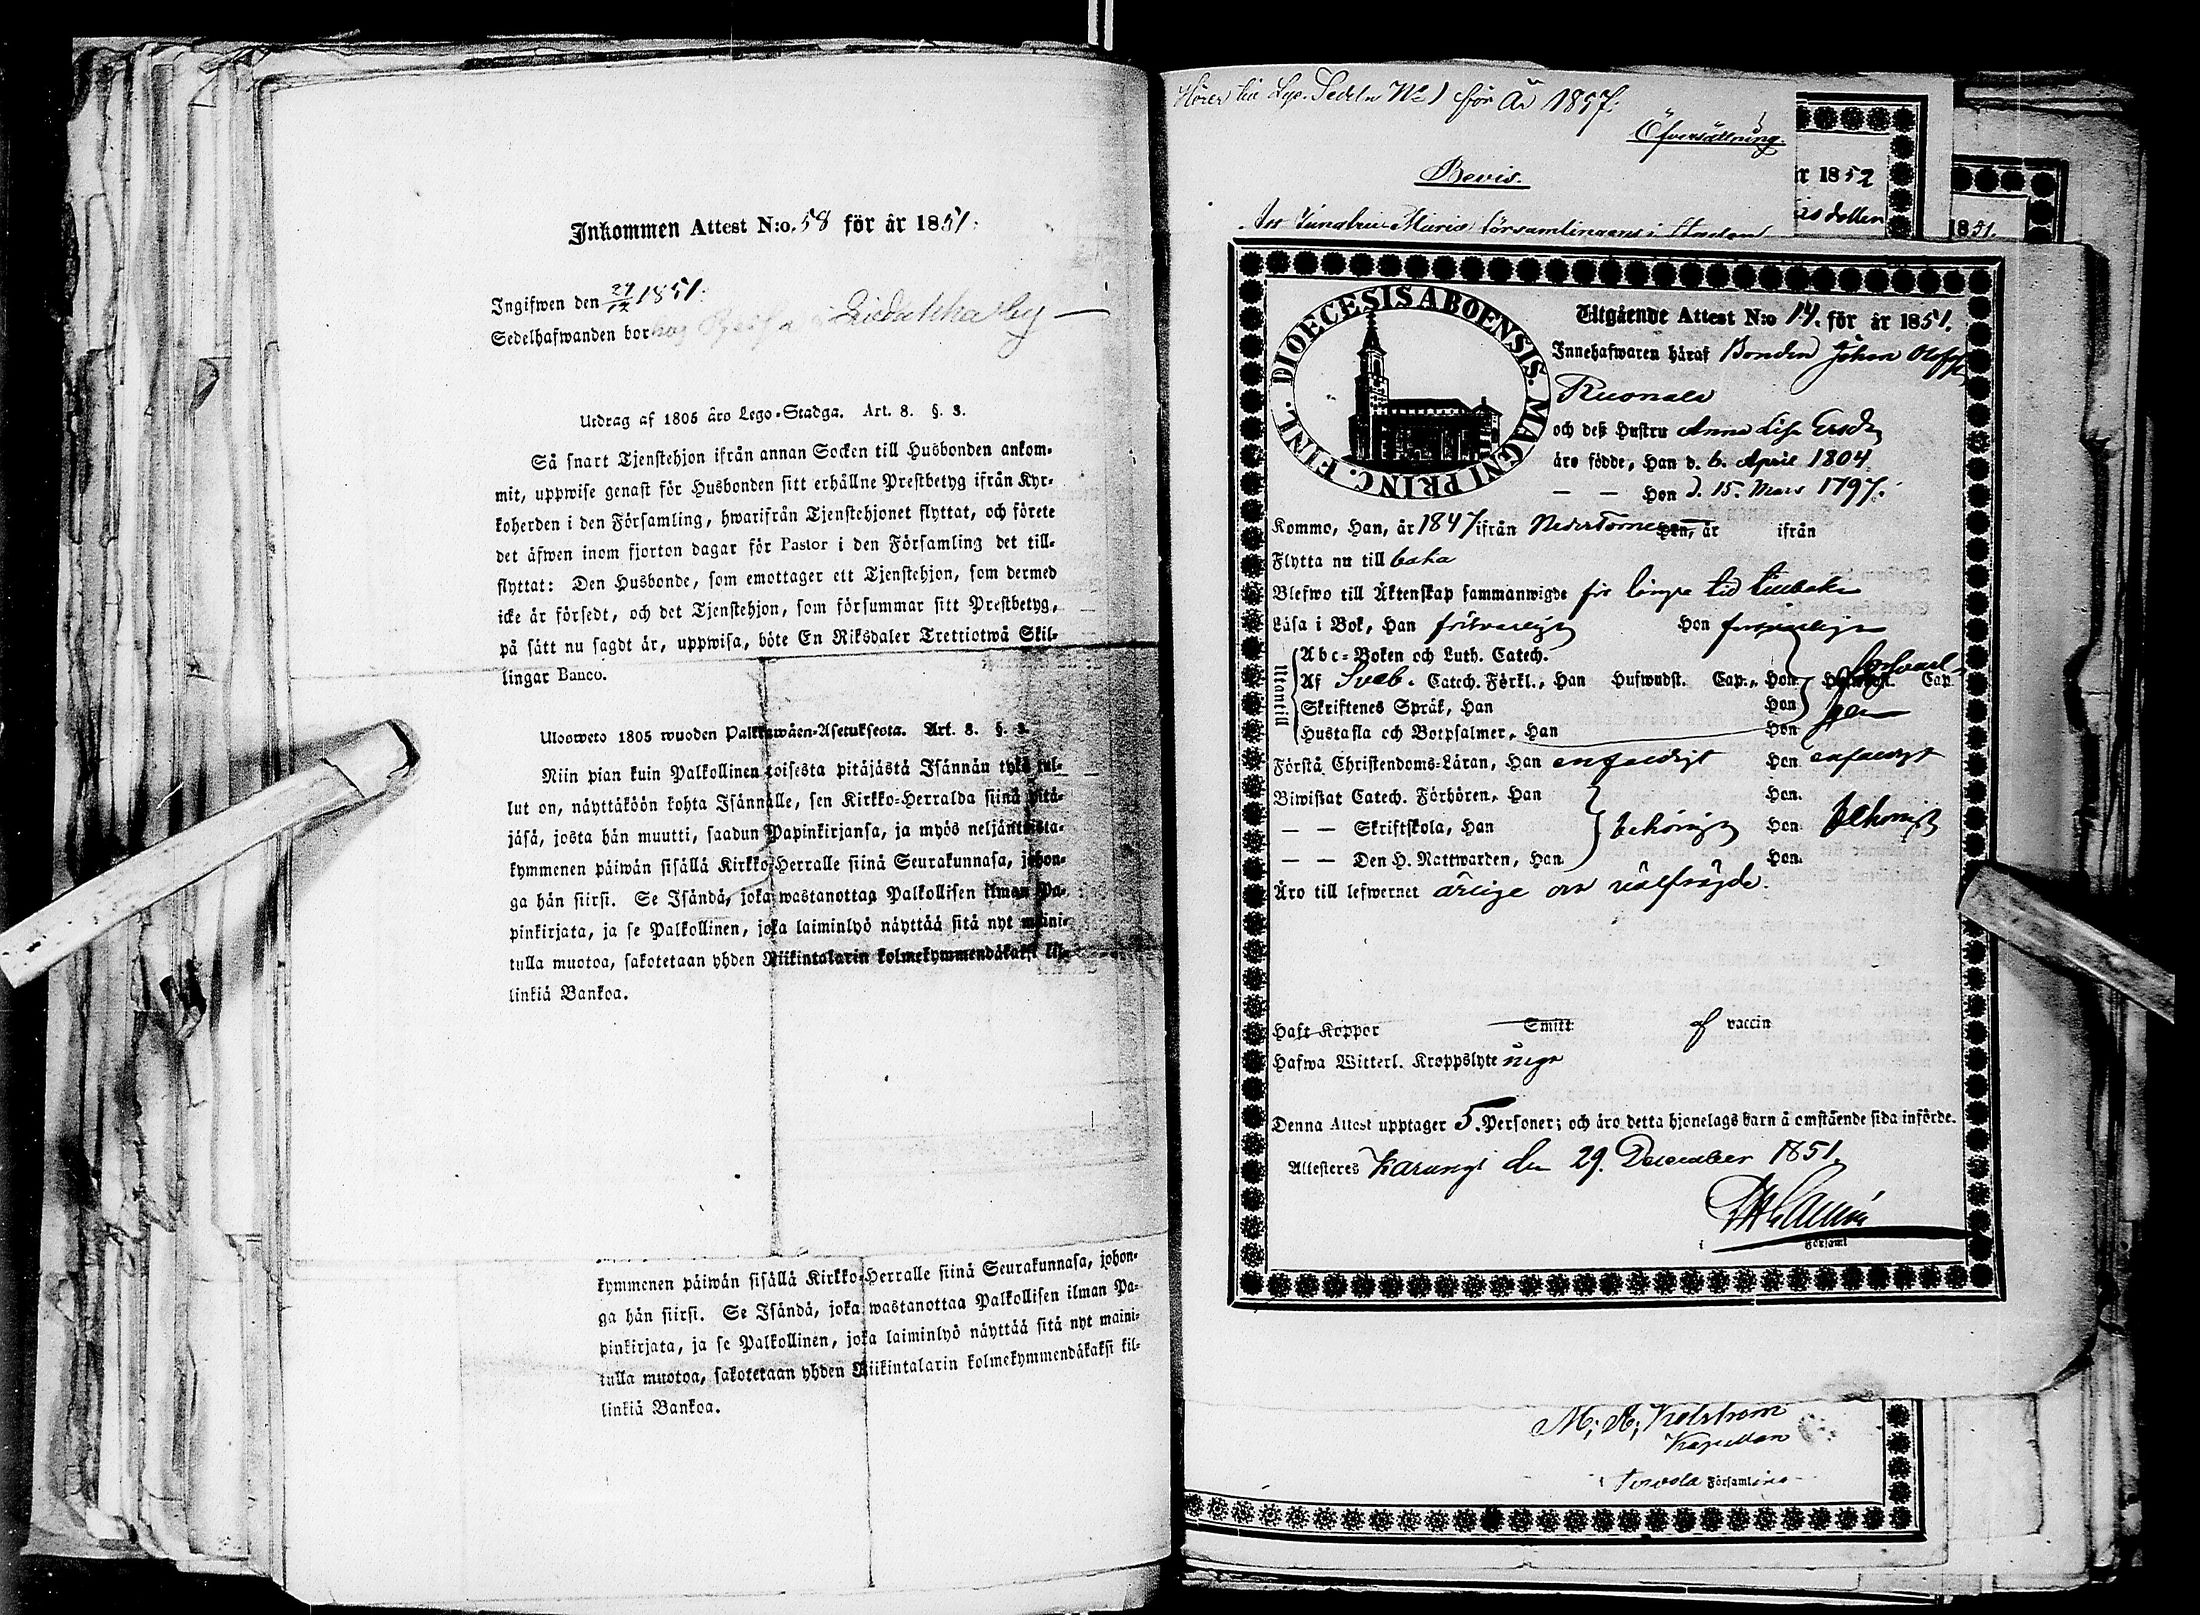 Inkommen Attest N:o. 58 för år 1851.
Ingifwen den 29/12 1851.
Sedelhafwanden bor hos
Utdrag af 1805 års Lego-Stadga. Art. 8. §. 3.
Så snart Tjenstehjon ifrån annan Socken till Husbonden ankom-
mit, uppwise genast för Husbonden sitt erhållne Prestbetyg ifrån Kyr-
koherden i den Församling, hwarifrån Tjenstehjonet flyttat, och förete
det äfwen inom fjorton dagar för Pastor i den Församling det till-
flyttat: Den Husbonde, som emottager ett Tjenstehjon, som dermed
icke är försedt, och det Tjenstehjon, som försummar sitt Prestbetyg,
på sätt nu sagdt är, uppwisa, böte En Riksdaler Trettiotwå Skil-
lingar Banco.
Ulosweto 1805 wuoden Palkkawäen-Asetuksesta. Art. 8. §. 3.
Niin pian kuin Palkollinen toisesta pitäjästä Isännän tykö tul-
lut on, näyttäköön kohta Isännälle, sen Kirkko-Herralda siinä pitä-
jäsä, josta hän muutti, saadun Papinkirjansa, ja myös neljäntoista-
kymmenen päiwän sisällä Kirkko-Herralle siinä Seurakunnasa, johon-
ga hän siirsi. Se Isändä, joka wastanottaa Palkollisen ilman Pa-
pinkirjata, ja se Palkollinen, joka laiminlyö näyttää sitä nyt maini-
tulla muotoa, sakotetaan yhden Riikintalarin kolmekymmendäkaksi kil-
linkiä Bankoa.
kymmenen päiwän sisällä Kirkko-Herralle siinä Seurakunnasa, johon-
ga hän siirsi. Se Isändä, joka wastanottaa Palkollisen ilman Pa-
pinkirjata, ja se Palkollinen, joka laiminlyö näyttää sitä nyt maini-
tulla muotoa, sakotetaan yhden Riikintalarin kolmekymmendäkaksi kil-
linkiä Bankoa.
Hörer till Sedeln No 1 för År 1857.
Öfversättning.
Bevis.
Jungfru Mariæ församlingens i Staden
r 1852
1851.
DIOECESIS ABOENSIS. MAGNI PRINC. FINL.
Utgående Attest N:o 14. för år 1851.
Innehafwaren häraf Bonden Johan Olofss
Ruonala
och deß Hustru Anna Lisa Ersdr
äro födde, Han d. 6. April 1804.
— — Hon d. 15. Mars 1797.
Kommo, Han, år 1847 ifrån Neder Torneå Hon, år ifrån
Flytta nu tillbaka
Blefwo till Äktenskap sammanwigde för längre tid tillbaka
Läsa i Bok, Han försvarligt Hon försvarligt
Utantill
Abc-Boken och Luth. Catech.
Af Sveb. Catech. Förkl., Han Hufwudst. Cap., Hon Hufwudst. Cap
Skriftenes Språk, Han Hon
Hustafla och Botpsalmer, Han Hon
Förstå Christendoms-Läran, Han enfaldigt Hon enfaldigt
Biwistat Catech. Förhören, Han Hon
— — Skriftskola, Han behörigt Hon behörigt
— — Den H. Nattwarden, Han Hon
Äro till lefwernet ärlige och välfrägde.
Haft Koppor Smitt af vaccin
Hafwa Witterl. Kroppslyte inga
Denna Attest upptager 5. Personer; och äro detta hjonelags barn å omstående sida införde.
Attesteres Karungi den 29. December 1851.
i Församl
Kapellan
i Tervola Församling